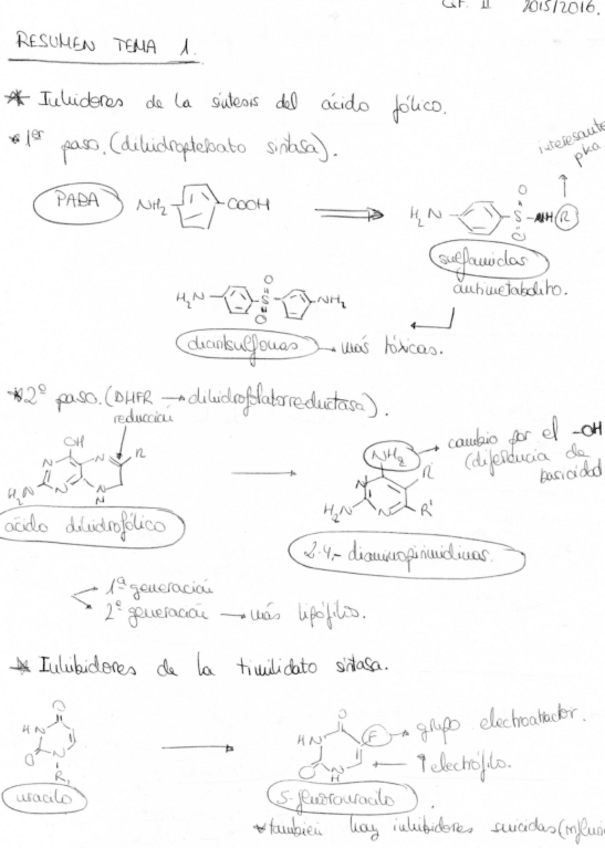 Q.F. II 2015/2016.
RESUMEN TEMA 1.
* Inhidores de la síntesis del ácido fólico.
* 1er paso. (dihidropteroato sintasa).
interesante pka
PABA NH2 COOH
H2N S O O NH R
sulfamidas
antimetabolito.
H2N S O O NH2
diarilsulfonas → más tóxicas.
* 2º paso. (DHFR → dihidrofolatorreductasa).
reducción
OH N N R H2N N N H
ácido dihidrofólico
NH2 R N H2N N R'
cambio por el -OH
(diferencia de basicidad
2,4,- diaminopirimidinas.
1ª generación
2ª generación → más lipófilos.
* Inhibidores de la timilidato sintasa.
O HN O N R,
uracilo
O HN F O N H
grupo electroatractor.
↑ electrófilo.
5-fluorouracilo
* también hay inhibidores suicidas